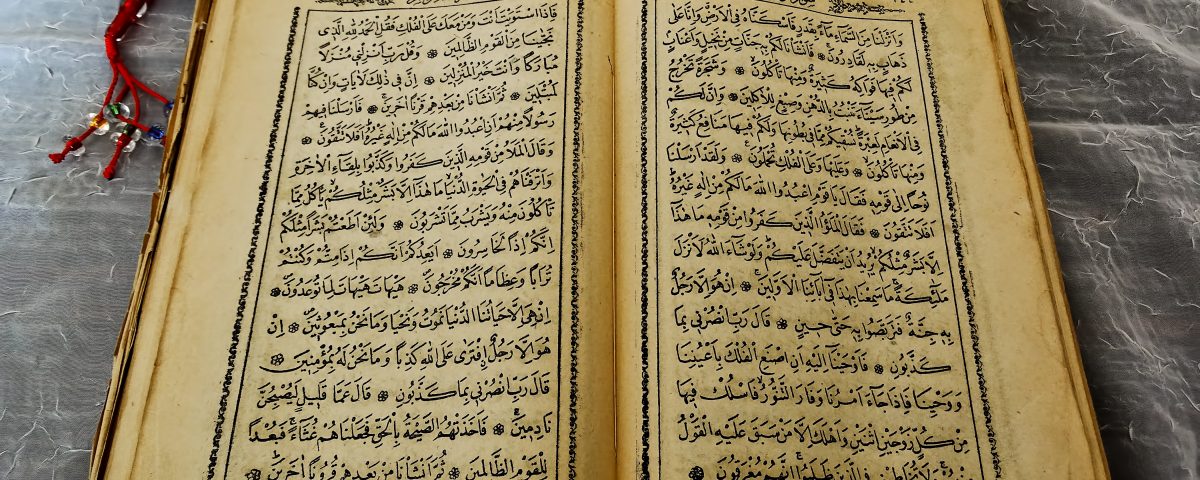 وَاَنْزَلْنَا مِنَ السَّمَٓاءِ مَٓاءً بِقَدَرٍ فَاَسْكَنَّاهُ فِى الْاَرْضِ وَاِنَّا عَلٰى
ذَهَابٍ بِهِ لَقَادِرُونَ ۞ فَاَنْشَأْنَا لَكُمْ بِهِ جَنَّاتٍ مِنْ نَخِيلٍ وَاَعْنَابٍ
لَكُمْ فِيهَا فَوَاكِهُ كَثِيرَةٌ وَمِنْهَا تَأْكُلُونَ ۞ وَشَجَرَةً تَخْرُجُ
مِنْ طُورِ سَيْنَٓاءَ تَنْبُتُ بِالدُّهْنِ وَصِبْغٍ لِلْاٰكِلِينَ ۞ وَاِنَّ لَكُمْ
فِى الْاَنْعَامِ لَعِبْرَةً نُسْقِيكُمْ مِمَّا فِى بُطُونِهَا وَلَكُمْ فِيهَا مَنَافِعُ كَثِيرَةٌ
وَمِنْهَا تَأْكُلُونَ ۞ وَعَلَيْهَا وَعَلَى الْفُلْكِ تُحْمَلُونَ ۞ وَلَقَدْ اَرْسَلْنَا
نُوحًا اِلٰى قَوْمِهِ فَقَالَ يَا قَوْمِ اعْبُدُوا اللّٰهَ مَا لَكُمْ مِنْ اِلٰهٍ غَيْرُهُ
اَفَلَا تَتَّقُونَ ۞ فَقَالَ الْمَلَؤُا الَّذِينَ كَفَرُوا مِنْ قَوْمِهِ مَا هٰذَٓا
اِلَّا بَشَرٌ مِثْلُكُمْ يُرِيدُ اَنْ يَتَفَضَّلَ عَلَيْكُمْ وَلَوْ شَٓاءَ اللّٰهُ لَاَنْزَلَ
مَلٰٓئِكَةً مَا سَمِعْنَا بِهٰذَا فِٓى اٰبَٓائِنَا الْاَوَّلِينَ ۞ اِنْ هُوَ اِلَّا رَجُلٌ
بِهِ جِنَّةٌ فَتَرَبَّصُوا بِهِ حَتّٰى حِينٍ ۞ قَالَ رَبِّ انْصُرْنِى بِمَا
كَذَّبُونِ ۞ فَاَوْحَيْنَٓا اِلَيْهِ اَنِ اصْنَعِ الْفُلْكَ بِاَعْيُنِنَا
وَوَحْيِنَا فَاِذَا جَٓاءَ اَمْرُنَا وَفَارَ التَّنُّورُ فَاسْلُكْ فِيهَا
مِنْ كُلٍّ زَوْجَيْنِ اثْنَيْنِ وَاَهْلَكَ اِلَّا مَنْ سَبَقَ عَلَيْهِ الْقَوْلُ
مِنْهُمْ وَلَا تُخَاطِبْنِى فِى الَّذِينَ ظَلَمُوا اِنَّهُمْ مُغْرَقُونَ ۞
فَاِذَا اسْتَوَيْتَ اَنْتَ وَمَنْ مَعَكَ عَلَى الْفُلْكِ فَقُلِ الْحَمْدُ لِلّٰهِ الَّذِى
نَجّٰينَا مِنَ الْقَوْمِ الظَّالِمِينَ ۞ وَقُلْ رَبِّ اَنْزِلْنِى مُنْزَلًا
مُبَارَكًا وَاَنْتَ خَيْرُ الْمُنْزِلِينَ ۞ اِنَّ فِى ذٰلِكَ لَاٰيَاتٍ وَاِنْ كُنَّا
لَمُبْتَلِينَ ۞ ثُمَّ اَنْشَأْنَا مِنْ بَعْدِهِمْ قَرْنًا اٰخَرِينَ ۞ فَاَرْسَلْنَا فِيهِمْ
رَسُولًا مِنْهُمْ اَنِ اعْبُدُوا اللّٰهَ مَا لَكُمْ مِنْ اِلٰهٍ غَيْرُهُ اَفَلَا تَتَّقُونَ ۞
وَقَالَ الْمَلَاُ مِنْ قَوْمِهِ الَّذِينَ كَفَرُوا وَكَذَّبُوا بِلِقَٓاءِ الْاٰخِرَةِ
وَاَتْرَفْنَاهُمْ فِى الْحَيٰوةِ الدُّنْيَا مَا هٰذَٓا اِلَّا بَشَرٌ مِثْلُكُمْ يَأْكُلُ مِمَّا
تَأْكُلُونَ مِنْهُ وَيَشْرَبُ مِمَّا تَشْرَبُونَ ۞ وَلَئِنْ اَطَعْتُمْ بَشَرًا مِثْلَكُمْ
اِنَّكُمْ اِذًا لَخَاسِرُونَ ۞ اَيَعِدُكُمْ اَنَّكُمْ اِذَا مِتُّمْ وَكُنْتُمْ
تُرَابًا وَعِظَامًا اَنَّكُمْ مُخْرَجُونَ ۞ هَيْهَاتَ هَيْهَاتَ لِمَا تُوعَدُونَ ۞
اِنْ هِىَ اِلَّا حَيَاتُنَا الدُّنْيَا نَمُوتُ وَنَحْيَا وَمَا نَحْنُ بِمَبْعُوثِينَ ۞ اِنْ
هُوَ اِلَّا رَجُلٌ اِفْتَرٰى عَلَى اللّٰهِ كَذِبًا وَمَا نَحْنُ لَهُ بِمُؤْمِنِينَ ۞
قَالَ رَبِّ انْصُرْنِى بِمَا كَذَّبُونِ ۞ قَالَ عَمَّا قَلِيلٍ لَيُصْبِحُنَّ
نَادِمِينَ ۞ فَاَخَذَتْهُمُ الصَّيْحَةُ بِالْحَقِّ فَجَعَلْنَاهُمْ غُثَٓاءً فَبُعْدًا
لِلْقَوْمِ الظَّالِمِينَ ۞ ثُمَّ اَنْشَأْنَا مِنْ بَعْدِهِمْ قُرُونًا اٰخَرِينَ ۞